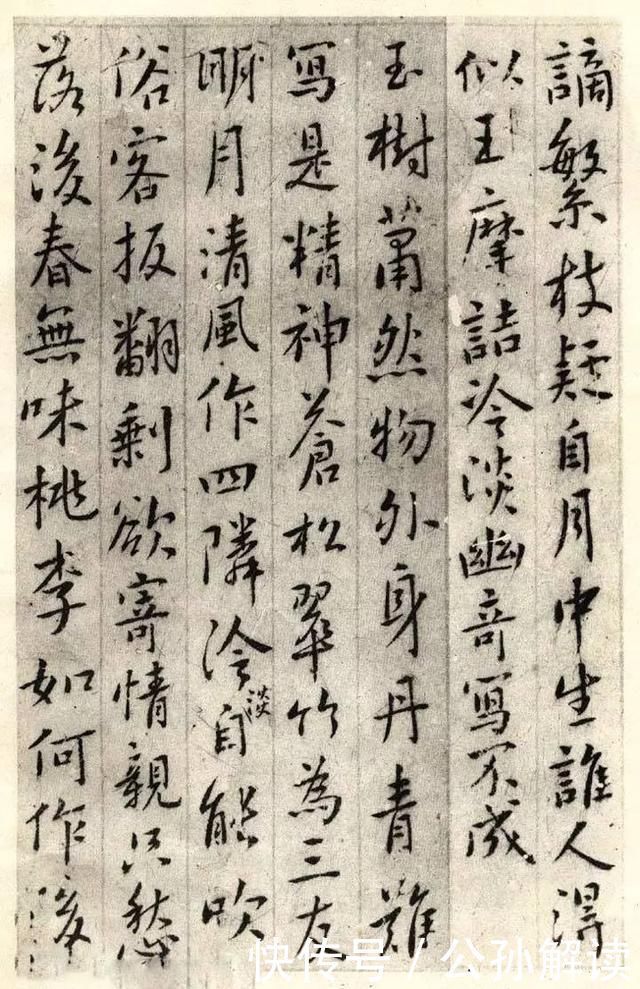 謫繁枝疑自月中生誰人得
似王摩詰冷淡幽奇寫不成
玉樹蕭然物外身丹青難
寫是精神蒼松翠竹為三友
明月清風作四隣冷淡自能吹
俗客扳翻剩欲寄情親只愁
落後春無味桃李如何作後
快传号 / 公孙解读